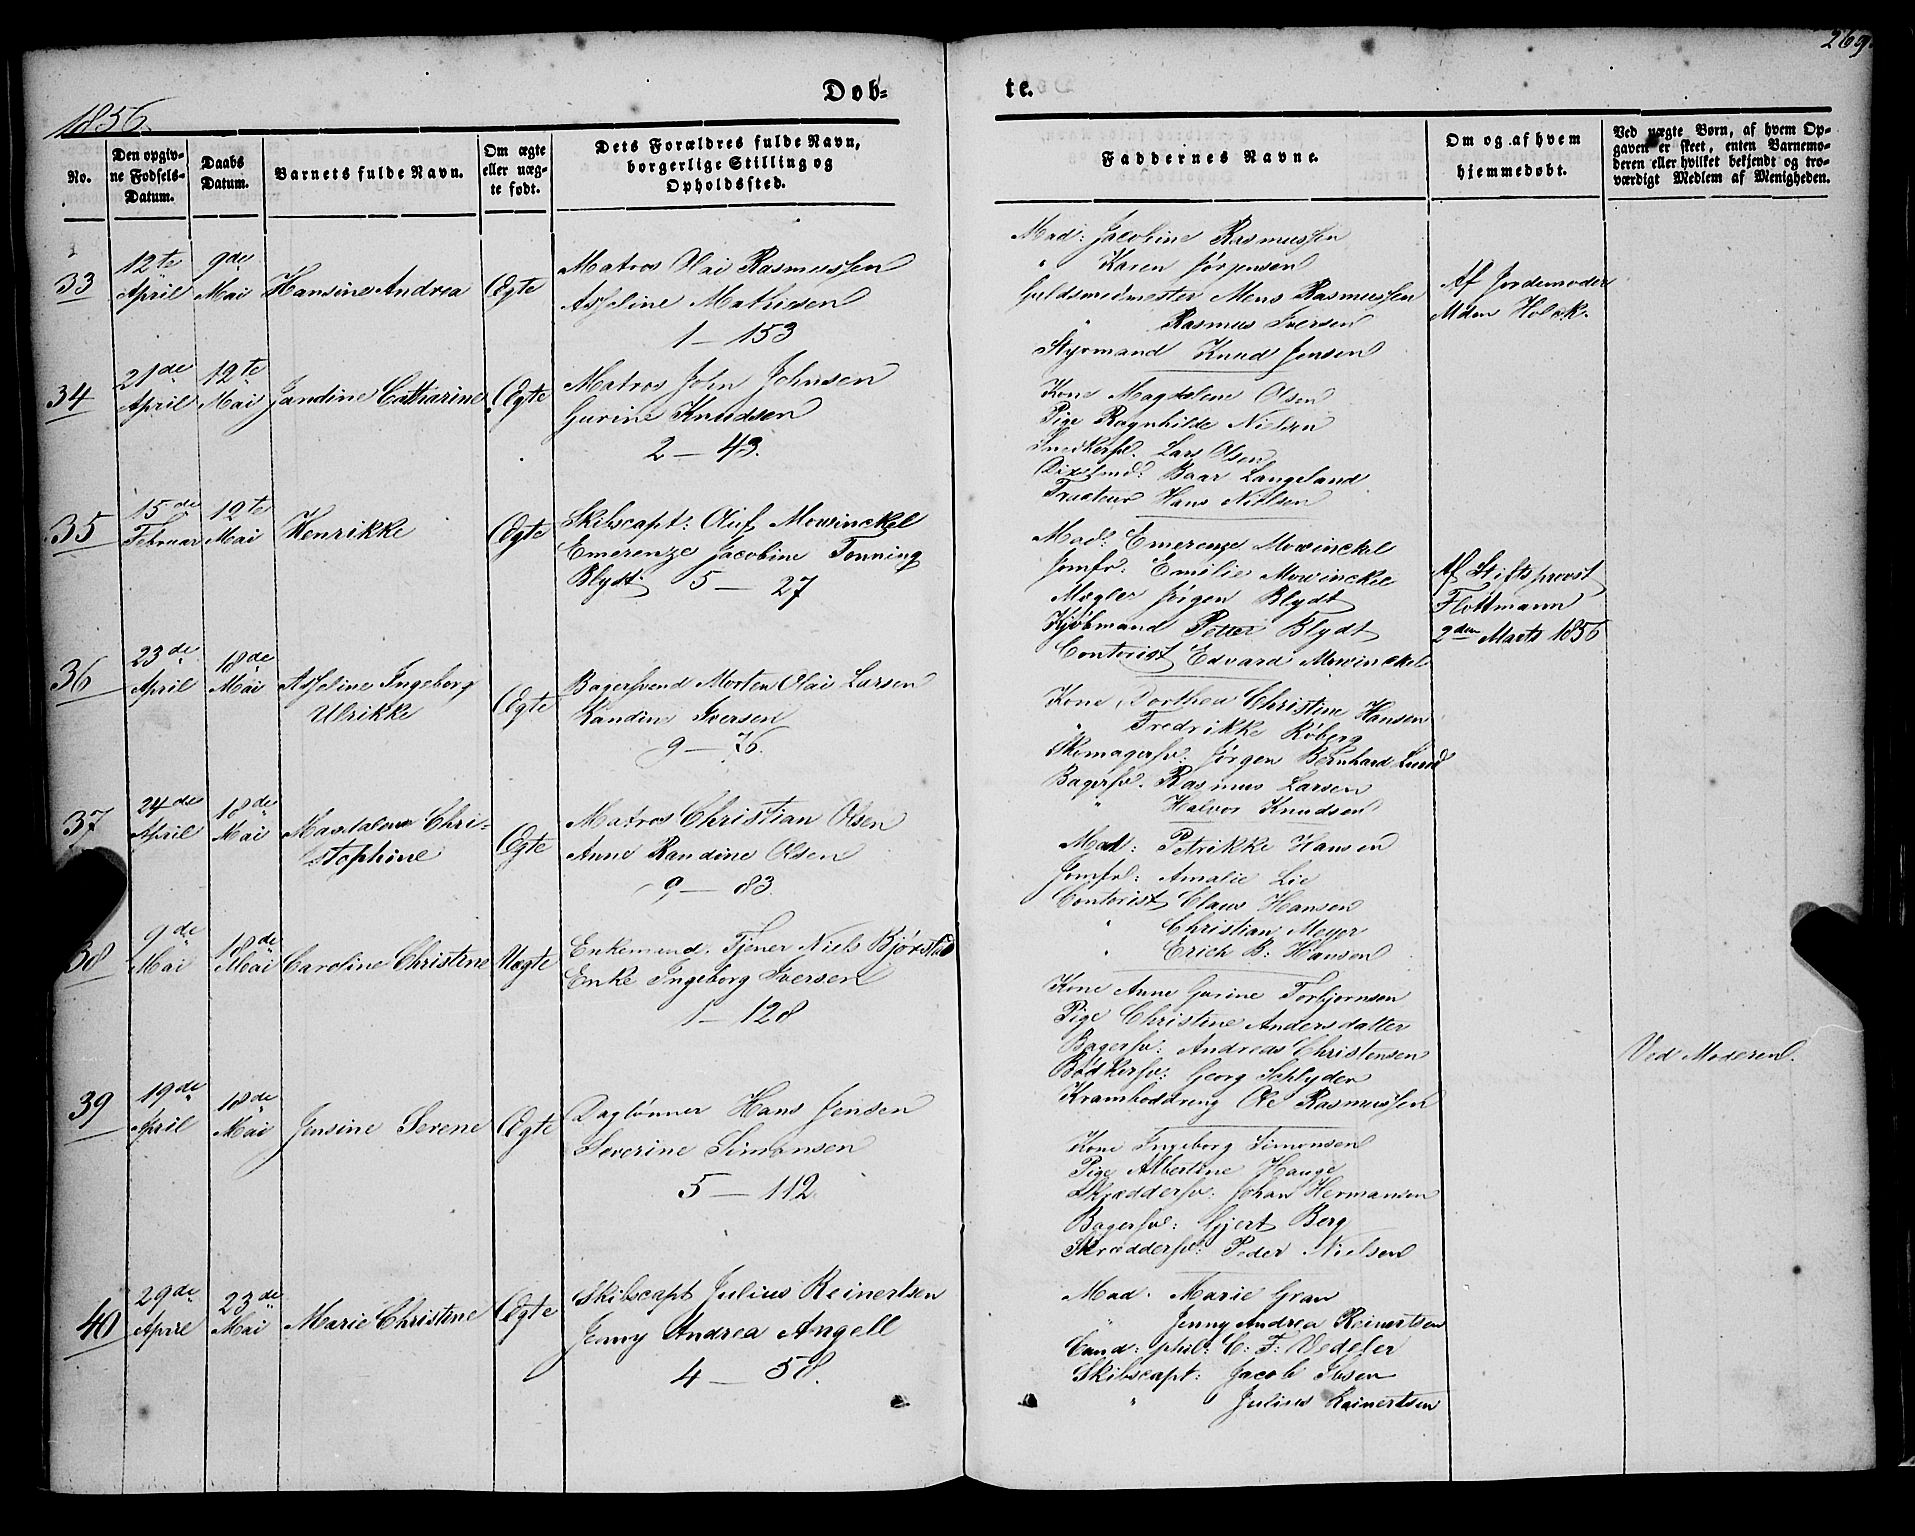 269.
1856.
Døb-
te.
No.
Den opgiv-
ne Fødsels-
Datum.
Daabs
Datum.
Barnets fulde Navn.
Om ægte
eller uæg-
te født.
Dets Forældres fulde Navn,
borgerlige Stilling og
Opholdssted.
Faddernes Navne.
Om og af hvem
hjemmedøbt.
Ved uægte Børn, af hvem Op-
gaven er skeet, enten Barnemo-
deren eller hvilket bekjendt og tro-
værdigt Medlem af Menigheden.
33
12te
April
9de
Mai
Hansine Andrea
Ægte
Matros Olai Rasmussen
Asseline Mathisen
1 — 153
Mad: Jacobine Rasmussen
" Karen Jørgensen
Guldsmedmester Mens Rasmussen
" Rasmus Iversen
Styrmand Knud Jensen
Af Jordemoder
Mden Holck.
34
21de
April
12te
Mai
Jandine Catharine
Ægte
Matros John Johnsen
Gurine Knudsen
2 — 43.
Kone Magdelene Olsen
Pige Ragnhilde Nielsen
Snedkersv. Lars Olsen
Baar Langeland
Tracteur Hans Nielsen
35
15de
Februar
12te
Mai
Henrikke
Ægte
Skibscapt: Oluf Mowinckel
Emerenze Jacobine Tonning
Blydt. 5 — 27
Mad: Emerenze Mowinckel
Jomfr: Emilie Mowinckel
Mægler Jørgen Blydt
Kjøbmand Petter Blydt
Contorist Edvard Mowinckel
Af Stiftsprovst
Flottmann
2den Marts 1856
36
23de
April
18de
Mai
Asseline Ingeborg
Ulrikke
Ægte
Bagersvend Morten Olai Larsen
Randine Iversen
9 — 76.
Kone Dorthea Christine Hansen
" Fredrikke Røberg
Skomagersv: Jørgen Bernhard Lund
Bagersv. Rasmus Larsen
" Halvor Knudsen
37
24de
April
18de
Mai
Magdalene Chri-
stophine
Ægte
Matros Christian Olsen
Anne Randine Olsen
9 — 83.
Mad: Petrikke Hansen
Jomfr: Amalie Lie
Contorist Claus Hansen
" Christian Meyer
" Erich B: Hansen
38
9de
Mai
18de
Mai
Caroline Christine
Uægte
Enkemand. Tjener Niels Bjørstad
Enke Ingeborg Iversen
1 — 128
Kone Anne Gurine Torbjørnsen
Pige Christine Andersdatter
Bagersv: Andreas Christensen
Bødkersv: Georg Schlyden
Kramboddreng Ole Rasmussen
Ved Moderen.
39
19de
April
18de
Mai
Jensine Serene
Ægte
Daglønner Hans Jensen
Severine Simonsen
5 — 112.
Kone Ingeborg Simonsen
Pige Albertine Hauge
Skræddersv: Johan Hermansen
Bagersv: Gjert Berg
Skræddersv: Peder Nielsen
40
29de
April
23de
Mai
Marie Christine
Ægte
Skibscapt Julius Reinertsen
Jenny Andrea Angell
4 — 58.
Mad. Marie Gran
" Jenny Andrea Reinertsen
Cand: phil: C: F: Vedeler
Skibscapt: Jacob Ibsen
" Julius Reinertsen